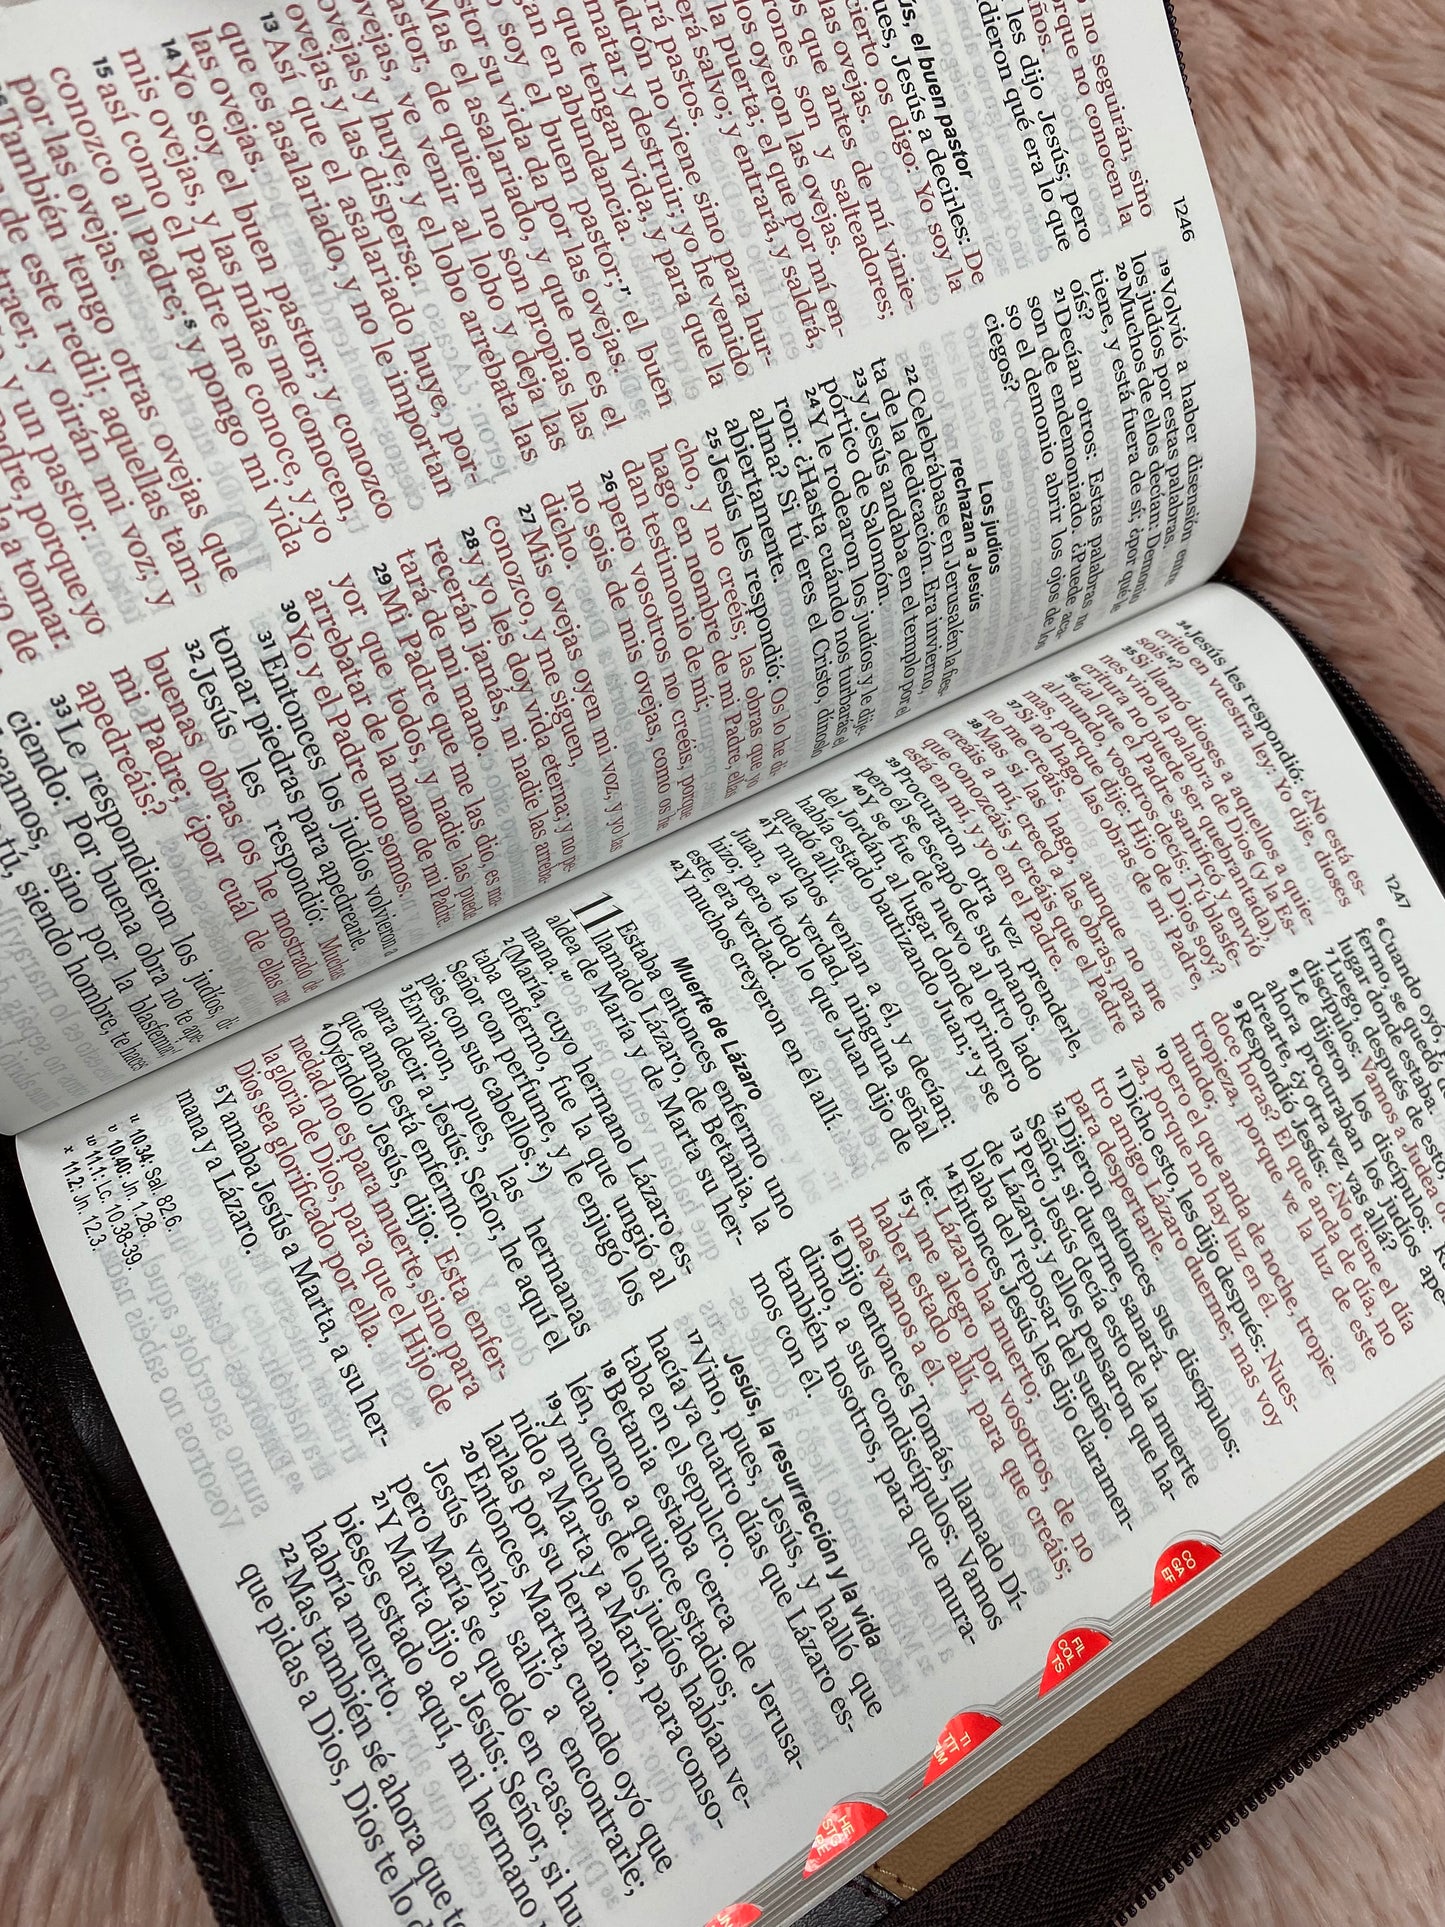 1246
o no seguirán, sino
orque no conocen la
ños.
les dijo Jesús; pero
dieron qué era lo que
ús, el buen pastor
ues, Jesús a decirles: De
cierto os digo: Yo soy la
las ovejas.
s que antes de mí vinie-
rones son y salteadores;
los oyeron las ovejas.
la puerta; el que por mí en-
erá salvo; y entrará, y saldrá,
ará pastos.
drón no viene sino para hur-
matar y destruir; yo he venido
que tengan vida, y para que la
an en abundancia.
o soy el buen pastor;r el buen
stor su vida da por las ovejas.
Mas el asalariado, y que no es el
astor, de quien no son propias las
ovejas, ve venir al lobo y deja las
ovejas y huye, y el lobo arrebata las
ovejas y las dispersa.
13 Así que el asalariado huye, por-
que es asalariado, y no le importan
las ovejas.
14 Yo soy el buen pastor; y conozco
mis ovejas, y las mías me conocen,
15 así como el Padre me conoce, y yo
conozco al Padre;s y pongo mi vida
por las ovejas.
16 También tengo otras ovejas que
n de este redil; aquellas tam-
traer, y oirán mi voz; y
y un pastor.
Padre, porque yo
la a tomar.
yo de
19 Volvió a haber disensión entre
los judíos por estas palabras.
20 Muchos de ellos decían: Demonio
tiene, y está fuera de sí; ¿por qué le
oís?
21 Decían otros: Estas palabras no
son de endemoniado. ¿Puede aca-
so el demonio abrir los ojos de los
ciegos?
Los judíos
rechazan a Jesús
22 Celebrábase en Jerusalén la fies-
ta de la dedicación. Era invierno,
23 y Jesús andaba en el templo por el
pórtico de Salomón.
24 Y le rodearon los judíos y le dije-
ron: ¿Hasta cuándo nos turbarás el
alma? Si tú eres el Cristo, dínoslo
abiertamente.
25 Jesús les respondió: Os lo he di-
cho, y no creéis; las obras que yo
hago en nombre de mi Padre, ellas
dan testimonio de mí;
26 pero vosotros no creéis, porque
no sois de mis ovejas, como os he
dicho.
27 Mis ovejas oyen mi voz, y yo las
conozco, y me siguen,
28 y yo les doy vida eterna; y no pe-
recerán jamás, ni nadie las arreba-
tará de mi mano.
29 Mi Padre que me las dio, es ma-
yor que todos, y nadie las puede
arrebatar de la mano de mi Padre.
30 Yo y el Padre uno somos.
31 Entonces los judíos volvieron a
tomar piedras para apedrearle.
32 Jesús les respondió: Muchas
buenas obras os he mostrado de
mi Padre; ¿por cuál de ellas me
apedreáis?
33 Le respondieron los judíos, di-
ciendo: Por buena obra no te ape-
dreamos, sino por la blasfemia;
tú, siendo hombre, te haces
1247
34 Jesús les respondió: ¿No está es-
crito en vuestra ley: Yo dije, dioses
soisu?
35 Si llamó dioses a aquellos a quie-
nes vino la palabra de Dios (y la Es-
critura no puede ser quebrantada),
36 ¿al que el Padre santificó y envió
al mundo, vosotros decís: Tú blasfe-
mas, porque dije: Hijo de Dios soy?
37 Si no hago las obras de mi Padre,
no me creáis.
38 Mas si las hago, aunque no me
creáis a mí, creed a las obras, para
que conozcáis y creáis que el Padre
está en mí, y yo en el Padre.
39 Procuraron otra vez prenderle,
pero él se escapó de sus manos.
40 Y se fue de nuevo al otro lado
del Jordán, al lugar donde primero
había estado bautizando Juan;v y se
quedó allí.
41 Y muchos venían a él, y decían:
Juan, a la verdad, ninguna señal
hizo; pero todo lo que Juan dijo de
éste, era verdad.
42 Y muchos creyeron en él allí.
Muerte de Lázaro
11 Estaba entonces enfermo uno
llamado Lázaro, de Betania, la
aldea de María y de Marta su her-
mana.w
2 (María, cuyo hermano Lázaro es-
taba enfermo, fue la que ungió al
Señor con perfume, y le enjugó los
pies con sus cabellos.x)
3 Enviaron, pues, las hermanas
para decir a Jesús: Señor, he aquí el
que amas está enfermo.
4 Oyéndolo Jesús, dijo: Esta enfer-
medad no es para muerte, sino para
la gloria de Dios, para que el Hijo de
Dios sea glorificado por ella.
5 Y amaba Jesús a Marta, a su her-
mana y a Lázaro.
u 10.34: Sal. 82.6.
v 10.40: Jn. 1.28.
w 11.1: Lc. 10.38-39.
x 11.2: Jn. 12.3.
6 Cuando oyó, p
fermo, se quedó
lugar donde estaba.
7 Luego, después de esto,
discípulos: Vamos a Judea o
8 Le dijeron los discípulos: R
ahora procuraban los judíos ape-
drearte, ¿y otra vez vas allá?
9 Respondió Jesús: ¿No tiene el día
doce horas? El que anda de día, no
tropieza, porque ve la luz de este
mundo;
10 pero el que anda de noche, tropie-
za, porque no hay luz en él.
11 Dicho esto, les dijo después: Nues-
tro amigo Lázaro duerme; mas voy
para despertarle.
12 Dijeron entonces sus discípulos:
Señor, si duerme, sanará.
13 Pero Jesús decía esto de la muerte
de Lázaro; y ellos pensaron que ha-
blaba del reposar del sueño.
14 Entonces Jesús les dijo claramen-
te: Lázaro ha muerto;
15 y me alegro por vosotros, de no
haber estado allí, para que creáis;
mas vamos a él.
16 Dijo entonces Tomás, llamado Dí-
dimo, a sus condiscípulos: Vamos
también nosotros, para que mura-
mos con él.
Jesús, la resurrección y la vida
17 Vino, pues, Jesús, y halló que
hacía ya cuatro días que Lázaro es-
taba en el sepulcro.
18 Betania estaba cerca de Jerusa-
lén, como a quince estadios;
19 y muchos de los judíos habían ve-
nido a Marta y a María, para conso-
larlas por su hermano.
20 Entonces Marta, cuando oyó que
Jesús venía, salió a encontrarle;
pero María se quedó en casa.
21 Y Marta dijo a Jesús: Señor, si hu-
bieses estado aquí, mi hermano
habría muerto.
22 Mas también sé ahora que to
que pidas a Dios, Dios te lo d
CO
GA
EF
FIL
COL
TS
TI
TIT
HE
STG